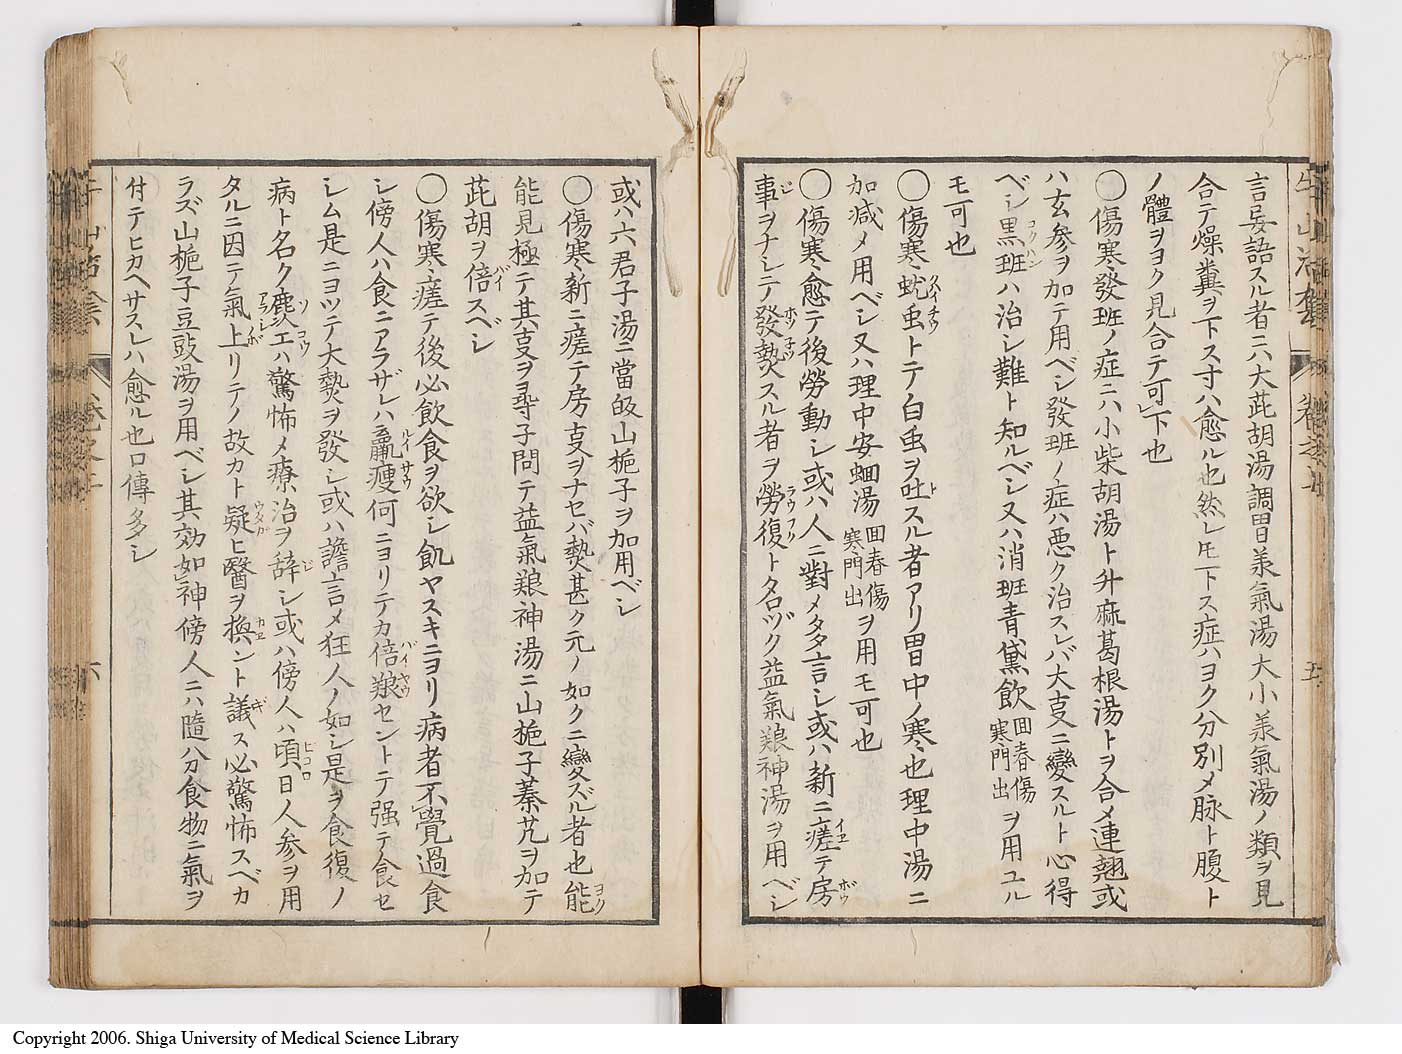 言妄語スル者ニハ大茈胡湯調胃羕氣湯大小羕氣湯ノ類ヲ見
合テ燥糞ヲ下ス寸ハ愈ル也然レ𪜈下ス症ハヨク分別メ脉ト腹ト
ノ體ヲヨク見合テ可下也
〇傷寒發班ノ症ニハ小柴胡湯ト升麻葛根湯トヲ合メ連翹或
ハ玄参ヲ加テ用ベシ發班ノ症ハ悪ク治スレバ大㕝ニ變スルト心得
ベシ黒班ハ治シ難ト知ルベシ又ハ消班青黛飲囬春傷寒門出ヲ用ユル
モ可也
〇傷寒蚘虫トテ白虫ヲ吐スル者アリ胃中ノ寒也理中湯ニ
加减メ用ベシ又ハ理中安蛔湯囬春傷寒門出ヲ用モ可也
〇傷寒愈テ後勞動シ或ハ人ニ對メタタ言シ或ハ新ニ瘥テ房
事ヲナシテ發𤍠スル者ヲ勞復トタロヅク益氣粮神湯ヲ用ベシ
或ハ六君子湯ニ當皈山梔子ヲ加用ベシ
〇傷寒新ニ瘥テ房㕝ヲナセバ𤍠甚ク元ノ如クニ變ズル者也能
能見極テ其㕝ヲヨ尋子問テ益氣粮神湯ニ山梔子蓁艽ヲ加テ
茈胡ヲ倍スベシ
〇傷寒瘥テ後必飲食ヲ欲シ飢ヤスキニヨリ病者不覺過食
シ傍人ハ食ニアラザレハ羸瘦何ニヨリテカ倍粮セントテ强テ食セ
シム是ニヨツテ大𤍠ヲ發シ或ハ譫言メ狂人ノ如シ是ヲ食復ノ
病ト名ク麁工ハ驚怖メ療治ヲ辞シ或ハ傍人ハ頃日人参ヲ用
タルニ因テノ氣上リテノ故カト疑ヒ醫ヲ換ント議ス必驚怖スベカ
ラズ山梔子豆豉湯ヲ用ベシ其効如神傍人ニハ隨ハ分食物ニ氣ヲ
付テヒカヘサスレハ愈ル也口傳多シ
五
六
Copyright 2006. Shiga University of Medical Science Library